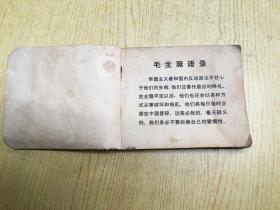 毛主席语录
帝国主义者和国内反动派决不甘心
于他们的失败，他们还要作最后的挣扎。
在全国平定以后，他们也还会以各种方
式从事破坏和捣乱，他们将每日每时企
图在中国复辟。这是必然的，毫无疑义
的，我们务必不要松懈自己的警惕性。